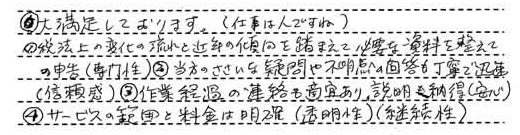 ⓪大満足しております。(仕事は人ですね)
①税法上の変化の流れと近年の傾向を踏まえて必要な資料を整えて
の申告(専門性)②当方のささいな疑問や不明点への回答も丁寧で迅速
(信頼感)③作業経過の連絡も適宜あり、説明も納得(安心)
④サービスの範囲と料金は明確(透明性)(継続性)